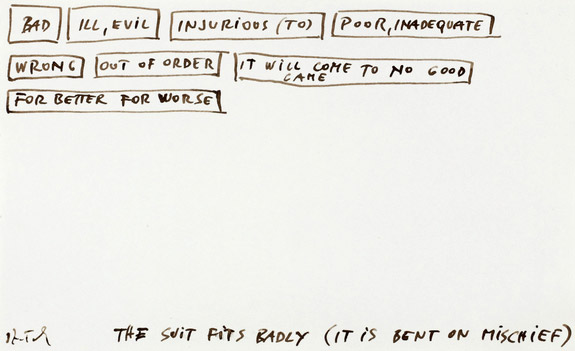 BAD ILL, EVIL INJURIOUS (TO) POOR, INADEQUATE
WRONG OUT OF ORDER IT WILL COME TO NO GOOD
CAME
FOR BETTER FOR WORSE
THE SUIT FITS BADLY (IT IS BENT ON MISCHIEF)